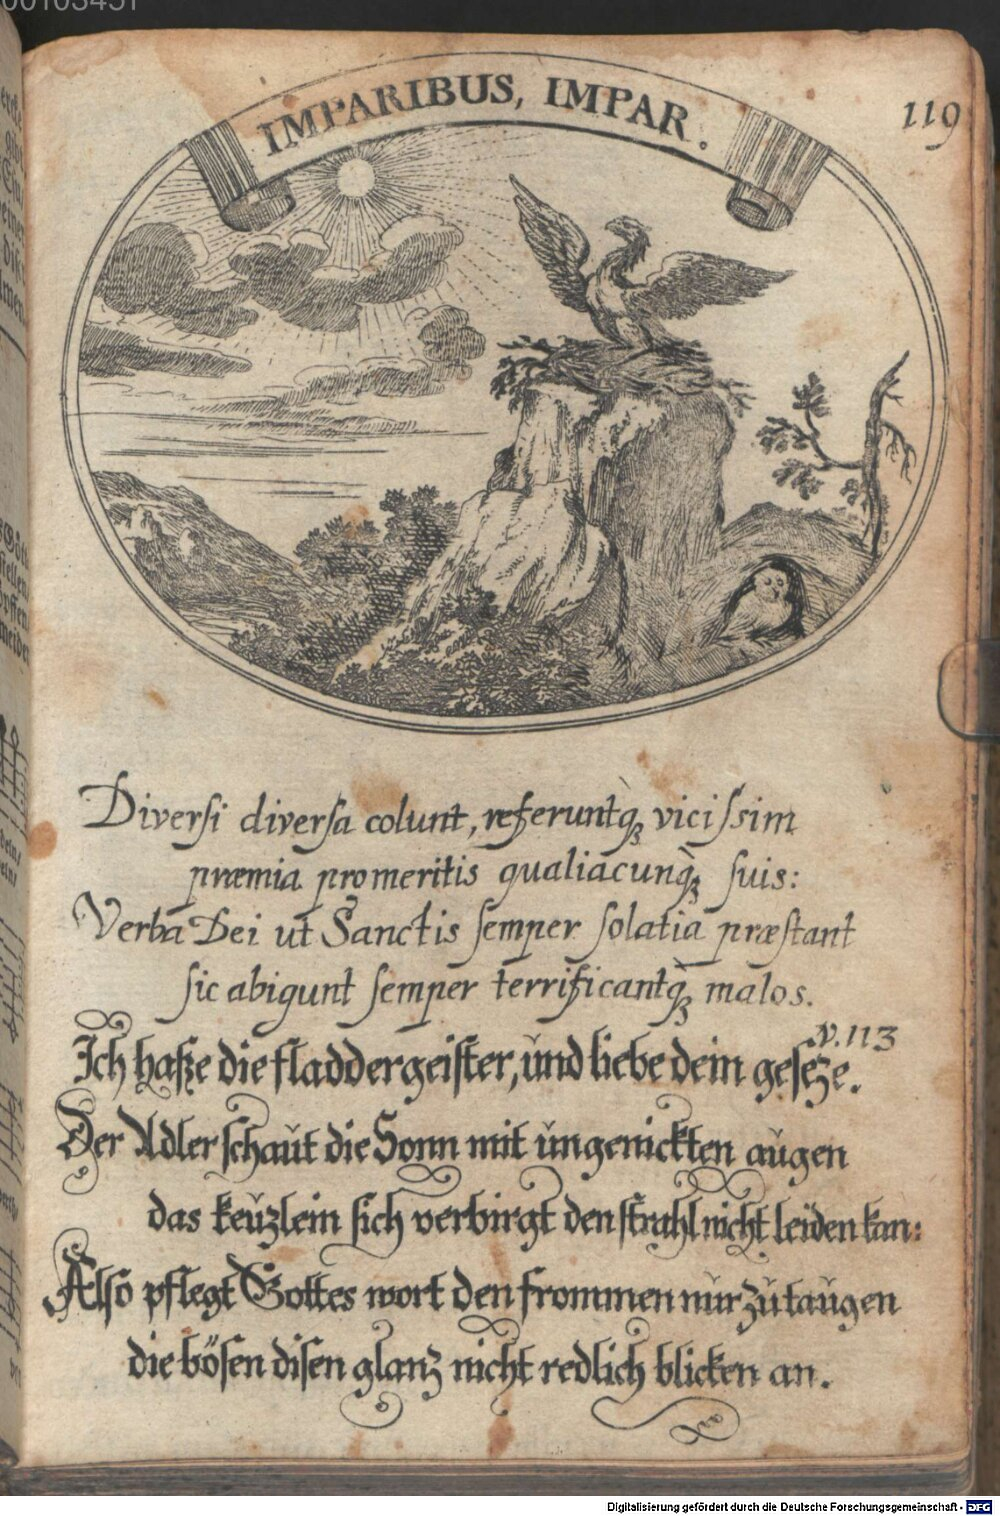 IMPARIBUS, IMPAR.
119
Diversi diversa colunt, referuntq́ꝫ vicissim
præmia promeritis qualiacunq́ꝫ suis:
Verba Dei ut Sanctis semper solatia præstant
sic abigunt semper terrificantq́ꝫ malos.
v. 113
Ich haße die fladdergeister, und liebe dein geseze.
Der Adler schaut die Sonn mit ungenickten augen
das keuzlein sich verbirgt den strahl nicht leiden kan:
Also pflegt Gottes wort den frommen nur zu taugen
die bösen disen glanz nicht redlich blicken an.
Digitalisierung gefördert durch die Deutsche Forschungsgemeinschaft - DFG